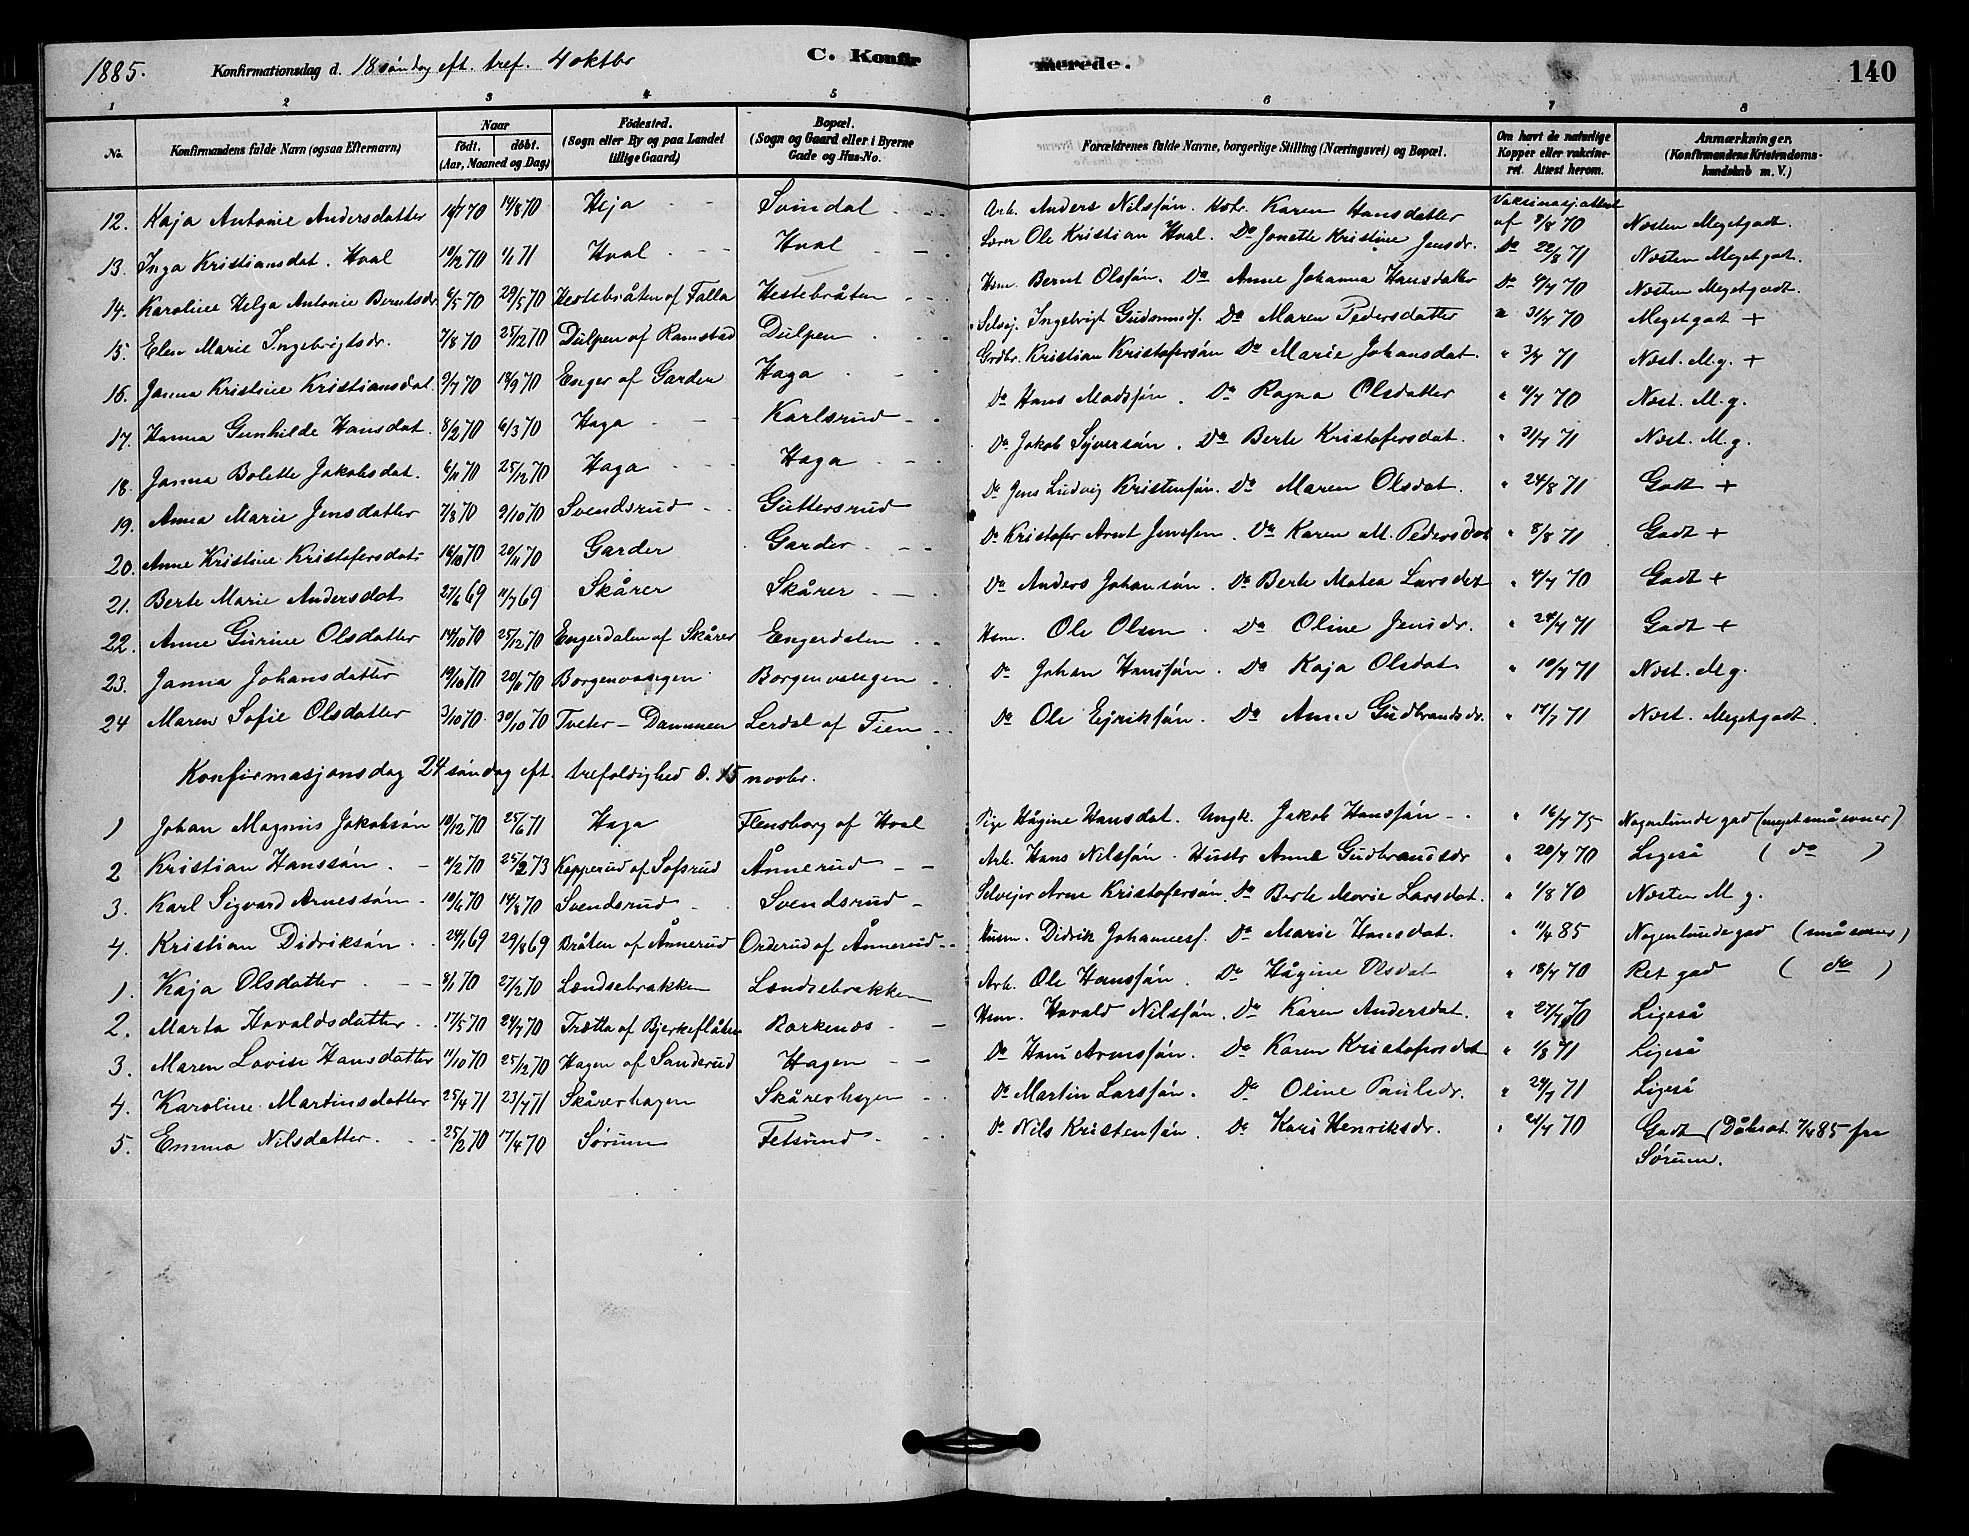 1885. Konfirmationsdag d. 18 søndag eft. tref. 4 oktbr C. Konfirmerede. 140
1 2 3 4 5 6 7 8
No. Konfirmandens fulde Navn (ogsaa Efternavn) Naar født. døbt. (Aar, Maaned og Dag) Födested. (Sogn eller By og paa Landet tillige Gaard) Bopæl. (Sogn og Gaard eller i Byerne Gade og Hus-No. Forældrenes fulde Navne, borgerlige Stilling (Næringsvei) og Bopæl. Om havt de naturlige Kopper eller vakcineret. Attest herom. Anmærkninger. (Konfirmandens Kristendomskundskab m. V.)
12. Kaja Antonie Andersdatter 14/7 70 14/8 70 Heja Svindal Arb. Anders Nilssøn. Hstr. Karen Hansdatter Vaksinasjattest af 9/8 70 Næsten Megetgodt.
13. Inga Kristiansdat. Hval 10/12 70 71 Hval Hval Lærer Ole Kristian Hval. Do Jonette Kristine Jensdr. Do 22/8 71 Næsten Megetgot.
14. Karoline Helga Antonie Berntsdr. 6/5 70 29/5 70 Hestebråten af Falla Hestebråten Hsm. Bernt Olssøn. Do Anne Johanna Hansdatter Do 4/7 70 Næsten Megetgodt.
15. Elen Marie Ingebrigtsdr. 7/8 70 25/12 70 Dulpen af Ramstad Dulpen Selvej. Ingebrigt Gudmunds. Do Maren Pedersdatter " 31/7 70 Megetgodt +
16. Janna Kristine Kristiansdat. 9/7 70 18/9 70 Enger af Garder Haga Grdbr. Kristian Kristofersøn Do Marie Johansdat. " 3/7 71 Næst. M.g. +
17. Hanna Gunhilde Hansdat. 8/2 70 6/3 70 Haga Karlsrud Do Hans Madssøn. Do Ragna Olsdatter " 4/7 70 Næst. M.g.
18. Janna Bolette Jakobsdat. 6/11 70 25/12 70 Haga Haga Do Jakob Syversøn. Do Berte Kristofersdat. " 31/7 71 Næst. M.g.
19. Anna Marie Jensdatter 7/8 70 2/10 70 Svendsrud Guttersrud Do Jens Ludvig Kristensøn. Do Maren Olsdat. " 24/8 71 Godt +
20. Anne Kristine Kristofersdatr 16/10 70 20/11 70 Garder Garder Do Kristofer Arnt Jenssen. Do Karen M. Pedersdat " 8/8 71 Godt +
21. Berte Marie Andersdat 27/6 69 11/7 69 Skårer Skårer Do Anders Johansøn. Do Berte Matea Larsdat " 4/7 70 Godt +
22. Anne Gurine Olsdatter 14/10 70 25/12 70 Engerdalen af Skårer Engerdalen Hsm. Ole Olsen. Do Oline Jensdr. " 24/7 71 Godt +
23. Janna Johansdatter 19/10 70 20/11 70 Borgenvangen Borgenvangen Do Johan Hanssøn. Do Kaja Olsdat " 10/7 71 Næst. M.g.
24 Maren Sofie Olsdatter 3/10 70 30/10 70 Tveter-Dammen Lerdal af Tien Do Ole Ejrikssøn. Do Anne Gudbrandsdr. " 17/7 71 Næst. Megetgodt.
Konfirmasjonsdag 24 søndag eft. trefoldighed d. 15 novbr.
1 Johan Magnus Jakobsøn 10/12 70 25/6 71 Haga Flensborg af Hval Pige Hågine Hansdat. Ungk. Jakob Hanssøn " 16/7 75 Nogenlunde gad (meget små evner)
2 Kristian Hanssøn. 11/2 70 25/2 73 Kopperud af Sofsrud Ånnerud Arb. Hans Nilssøn. Hustr Anne Gudbrandsdr " 20/7 70 Ligeså (do)
3. Karl Sigvard Arnessøn 10/6 70 14/8 70 Svendsrud Svendsrud Selvejer Arne Kristofersøn. Do Berte Marie Larsdat. " 1/8 70 Næsten M.g.
4. Kristian Didriksøn. 24/1 69 29/8 69 Bråten af Ånnerud Orderud af Ånnerud Husm. Didrik Johanness. Do Marie Hansdat. " 11/4 85 Nogenlunde gad (små evner)
1. Kaja Olsdatter 8/1 70 27/2 70 Lændsebrakken Lændsebrakken Arb. Ole Hanssøn. Do Hågine Olsdat " 18/7 70 Ret gad (do)
2. Marta Havaldsdatter 17/5 70 24/7 70 Trætta af Bjerkeflåten Barkenæs Hsm. Havald Nilssøn. Do Karen Andersdat. " 27/7 70 Ligeså
3. Maren Lovise Hansdatter 11/10 70 25/12 70 Hagen af Sanderud Hagen Do Hans Arnessøn. Do Karen Kristofersdat " 1/8 71 Ligeså
4. Karoline Martinsdatter 25/4 71 23/7 71 Skårerhagen Skårerhagen Do Martin Larssøn. Do Oline Paulsdr. " 24/7 71 Ligeså
5. Emma Nilsdatter. 25/2 70 17/4 70 Sørum Fetsund Do Nils Kristensøn. Do Kari Henriksdr. " 21/7 70 Godt (Dåbsat. 7/4 85 fra
Sørum.